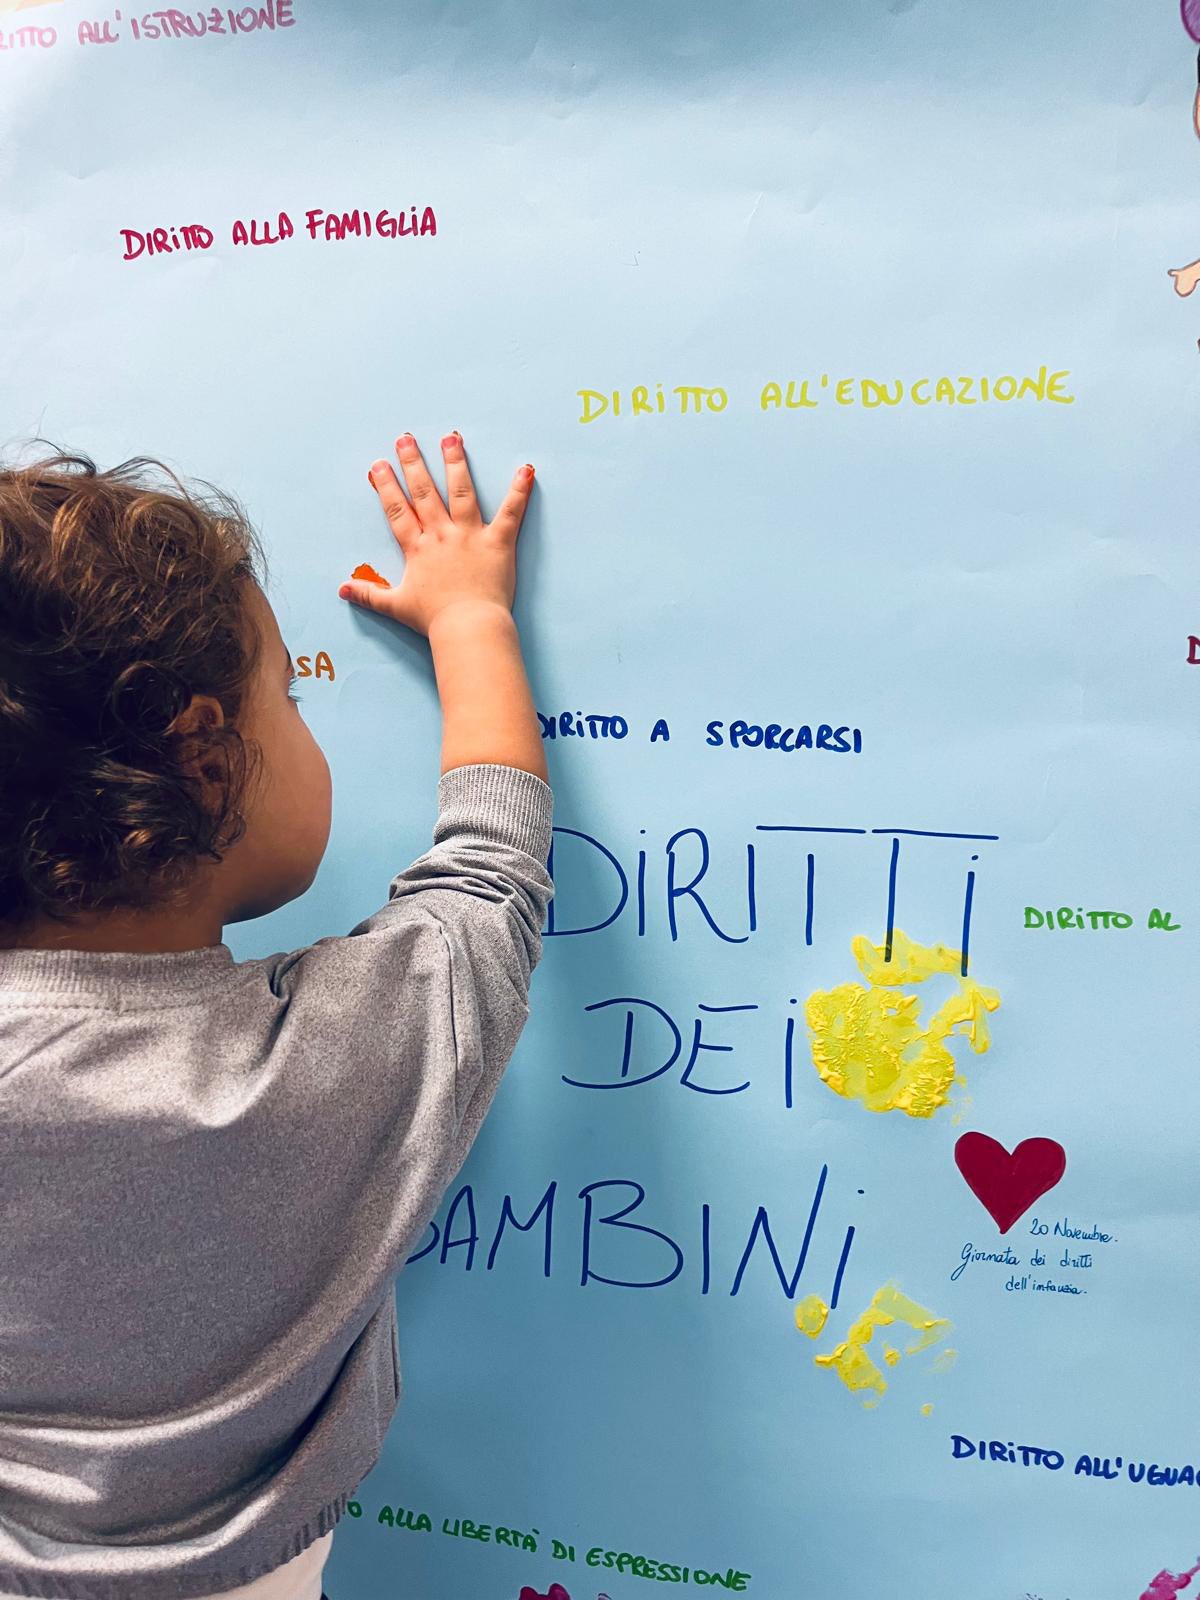 DIRITTO ALL'ISTRUZIONE
DIRITTO ALLA FAMIGLIA
DIRITTO ALL'EDUCAZIONE
DIRITTO A SPORCARSI
DIRITTI
DEI
BAMBINI
DIRITTO AL
20 Novembre.
Giornata dei diritti
dell'infanzia.
DIRITTO ALL'
ALLA LIBERTÀ DI ESPRESSIONE